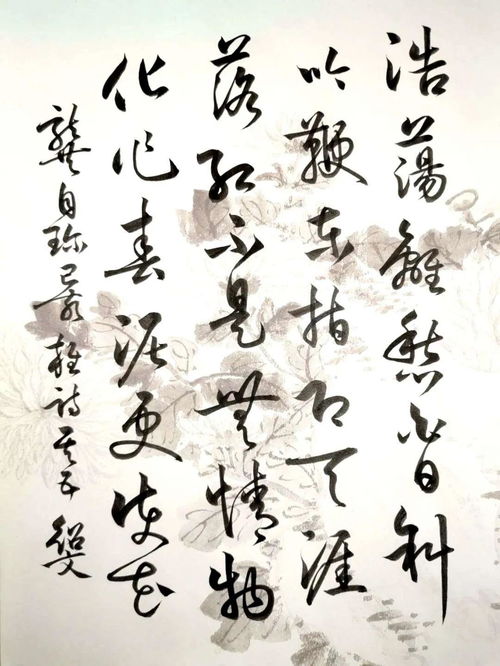 浩蕩離愁白日斜
吟鞭東指即天涯
落紅不是無情物
化作春泥更護花
龔自珍己亥雜詩其五